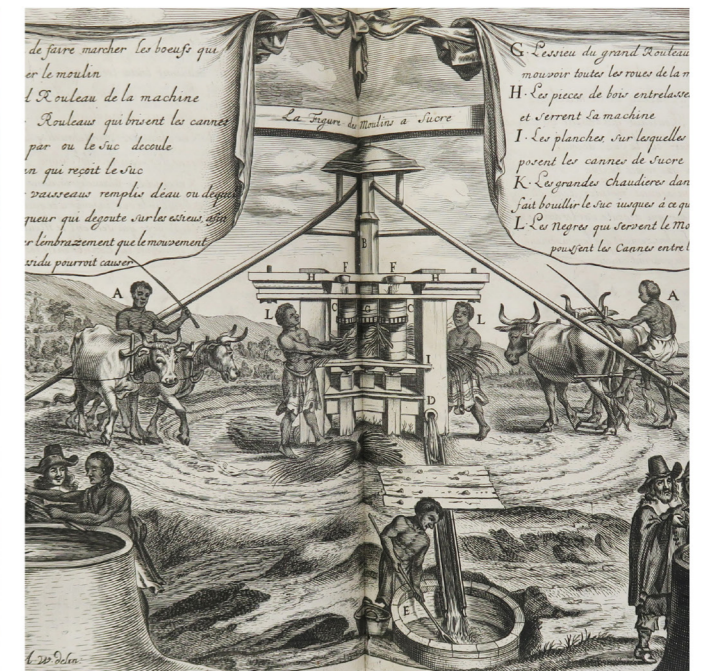 de faire marcher les boeufs qui
er le moulin
d Rouleau de la machine
Rouleaus qui brisent les cannes
par ou le suc decoule
n qui reçoit le suc
vaisseaus remplis d'eau ou
queur qui degoute sur les essieus, afin
er l'embrazement que le mouvement
ssidu pourroit causer
La Figure des Moulins a Sucre
G. L'essieu du grand Rouleau
mouvoir toutes les roues de la m
H. Les pieces de bois entrelasse
et serrent La machine
I. Les planches, sur lesquelles
posent les cannes de sucre
K. Les grandes chaudieres dan
fait bouillir le suc iusques à ce qu
L. Les negres qui servent le Mo
poussent les Cannes entre l
B
A
A
H
F
F
H
L
C
G
C
L
I
D
E
delin.